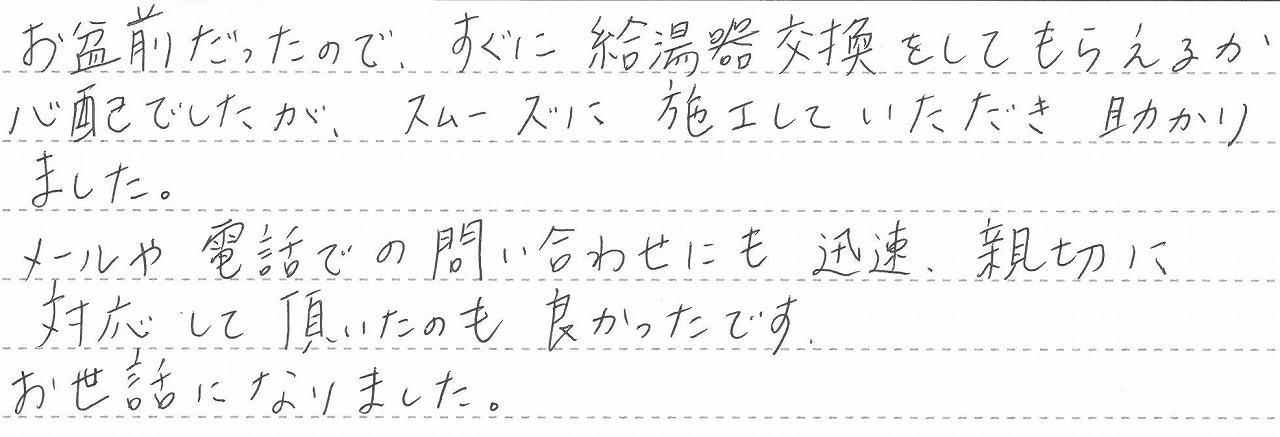 お盆前だったので、すぐに給湯器交換をしてもらえるか
心配でしたが、スムーズに施工していただき助かり
ました。
メールや電話での問い合わせにも迅速、親切に
対応して頂いたのも良かったです。
お世話になりました。